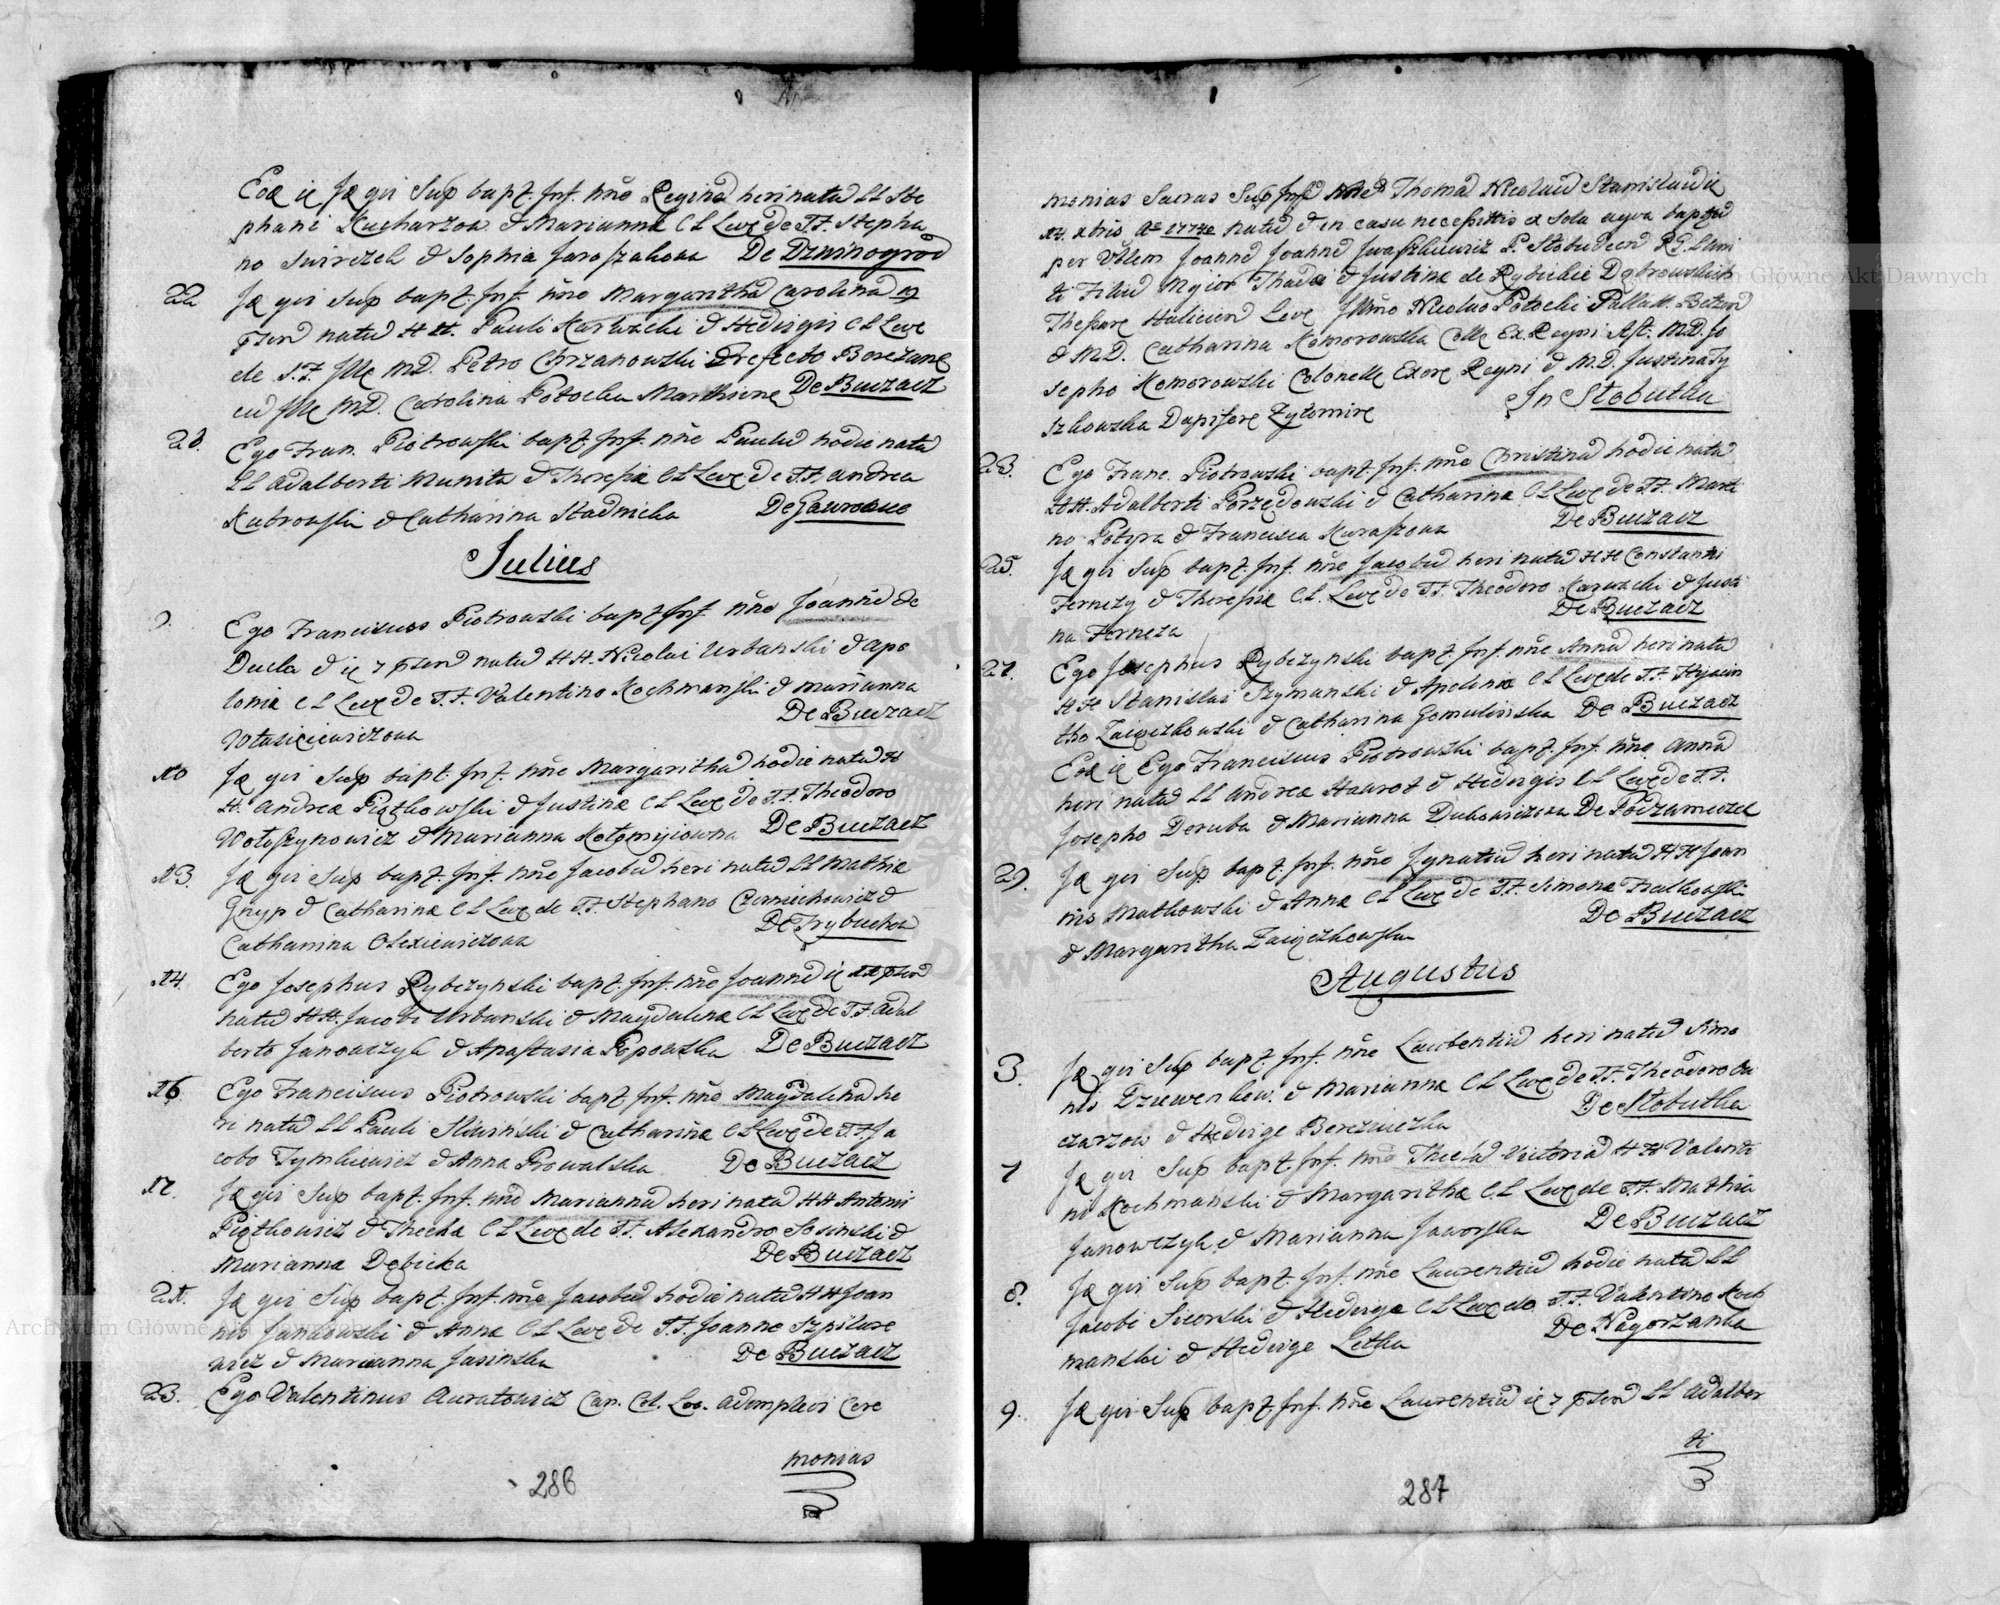 Eod ię Jdę qui Sup bapt. Inf. nňe Reginā heri natā LL Ste
phani Kucharzow & Mariannæ CL Levę de S.F. Stepha
no Swirczek & Sophia Jaroszakowa De Dzwinogrod
22 Jdę qui Sup bapt. Inf. nňe Margarithā Carolinā 19
pśen natā HH. Pauli Karwicki & Hedvigis CL Levę
de S.F. Jllę MD. Petro Chrzanowski Prefecto Borezanę
cū Jllę MD. Carolina Potocka Marthiinę De Buczacz
28. Ego Fran. Piotrowski bapt. Inf. nňe Paulū hodie natū
LL Adalberti Munita & Theresiæ CL Levę de S.F. Andrea
Kutrowski & Catharina Stadnicka De Jaworowe
Julius
9. Ego Franciscus Piotrowski bapt. Inf. nňe Joannē de
Ducla & ię 7 pśen natū HH. Nicolai Urbanski & Apo
loniæ CL Levę de S.F. Valentino Kochmanski & Marianna
De Buczacz
Wlasiciewiczowa
10 Jdę qui Sup bapt. Inf. nňe Margarithā hodie natā H
H. Andreæ Piątkowski & Justinæ CL Levę de S.F. Theodoro
Wołoszynowicz & Marianna Kołomyiowna De Buczacz
13. Jdę qui Sup bapt. Inf. nňe Jacobū heri natū LL Mathiæ
Gnyp & Catharinæ CL Levę de S.F. Stephano Czerniechowicz &
Catharina Olexiewiczowa De Trybuchow
14. Ego Josephus Rybczynski bapt. Inf. nňe Joannē ię 11 pśen
natū HH. Jacobi Urbanski & Magdalenæ CL Levę de S.F. Adal
berto Janowczyk & Anastasia Popowska De Buczacz
16. Ego Franciscus Piotrowski bapt. Inf. nňe Magdalenā he
ri natā LL Pauli Sliwinski & Catharinæ CL Levę de S.F. Ja
cobo Tymkiewicz & Anna Prowalska De Buczacz
17. Jdę qui Sup bapt. Inf. nňe Mariannā heri natā HH Antoni
Piątkowicz & Theclæ CL Levę de S.F. Alexandro Sosinski &
Marianna Debicka De Buczacz
21. Jdę qui Sup bapt. Inf. nňe Jacobū hodie natū HH Joan
nis Jankowski & Annæ CL Levę de S.F. Joanne Szpilare
wicz & Marianna Jasinska De Buczacz
23. Ego Valentinus Auratowicz Can. Col. Leo. adimplevi Cere
monias
286
monias Sacras Sup Infē nňe Thomā Nicolaū Stanislaū ię
21. xbris Ao 1774 natū & in casu necessittis ex sola aqva baptu
per Vblem Joannē Iwaszkiewicz P. Stobudecū RG. Uni
ti Filiū Mgior Thadei & Justinæ de Rybickie Dąbrowskich
Thesaurę Halicien Levę Jllňo Nicolao Potocki Pallatt. Betzen
& MD. Catharina Komorowska Colle ExRegni Ast. MD. Jo
sepho Komorowski Colonelle Exerę Regni & MD. Justina Ty
szkowska Dapifore Zytomirę In Stobutka
23. Ego Franc. Piotrowski bapt. Inf. nňe Christinā hodie natā
HH. Adalberti Porzędowski & Catharinæ CL Levę de S.F. Marti
no Potyra & Francisca Kuraszowa De Buczacz
25. Jdę qui Sup bapt. Inf. nňe Jacobū heri natū HH Constanti
Ferneży & Theresiæ CL. Levę de S.F. Theodoro Karwacki & Justi
na Ferneza De Buczacz
27. Ego Josephus Rybczynski bapt. Inf. nňe Annā heri natā
HH Stanislai Szymanski & Apoloniæ CL Levę de S.F. Hyacin
tho Zaięczkowski & Catharina Gomulinska De Buczacz
Eod ię Ego Franciscus Piotrowski bapt. Inf. nňe Annā
heri natā LL Andreæ Hawrot & Hedvigis CL Levę de S.F.
Josepho Doruba & Marianna Dubowiczowa De Podzameczek
29. Jdę qui Sup. bapt. Inf. nňe Ignatiū heri natū HH Joan
nis Mutkowski & Annæ CL Levę de S.F. Simonæ Frutkowski
& Margaritha Zaięczkowska De Buczacz
Augustus
3. Jdę qui Sup bapt. Inf. nňe Laurentiū heri natū Simo
nis Dziewenkow. & Mariannæ CL Levę de S.F. Theodoro Ow
czarzow & Hedvige Bereziuczka De Stobutka
7 Jdę qui Sup bapt. Inf. nňe Theclā Victoriā HH Valenti
ni Kochmanski & Margarithæ CL Levę de S.F. Mathia
Janowczyk & Marianna Jaworska De Buczacz
8. Jdę qui Sup bapt. Inf. nňe Laurentiū hodie natū LL
Jacobi Siworski & Hedvigæ CL Levę de S.F. Valentino Koch
manski & Hedvige Letka De Nagorzanka
9. Jdę qui Sup bapt. Inf. nňe Laurentiū ię 7 pśen LL Adalber
ti
287
Archiwum Główne Akt Dawnych
Archiwum Główne Akt Dawnych